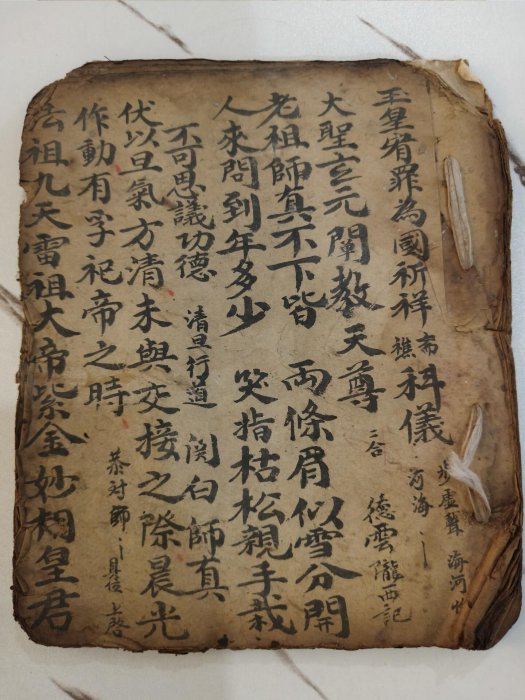 玉皇宥罪為國祈祥醮科儀
步虛聲 海河
河海
大聖玄元闡教天尊 二合 德雲隴西記
老祖師真不下階 两條眉似雪分開
人來問到年多少 笑指枯松親手栽
不可思議功德 清旦行道 関白師真
伏以旦氣方清未與交接之際晨光
作動有孚祀帝之時 恭对師 具位上啓
法祖九天雷祖大帝紫金妙相皇君